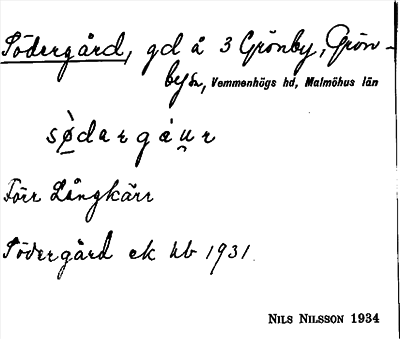 Södergård, gd å 3 Grönby, Grön-
by sn, Vemmenhögs hd, Malmöhus län
sø̀dargáu̯r
Förr Långkärr
Södergård ek kb 1931.
NILS NILSSON 1934